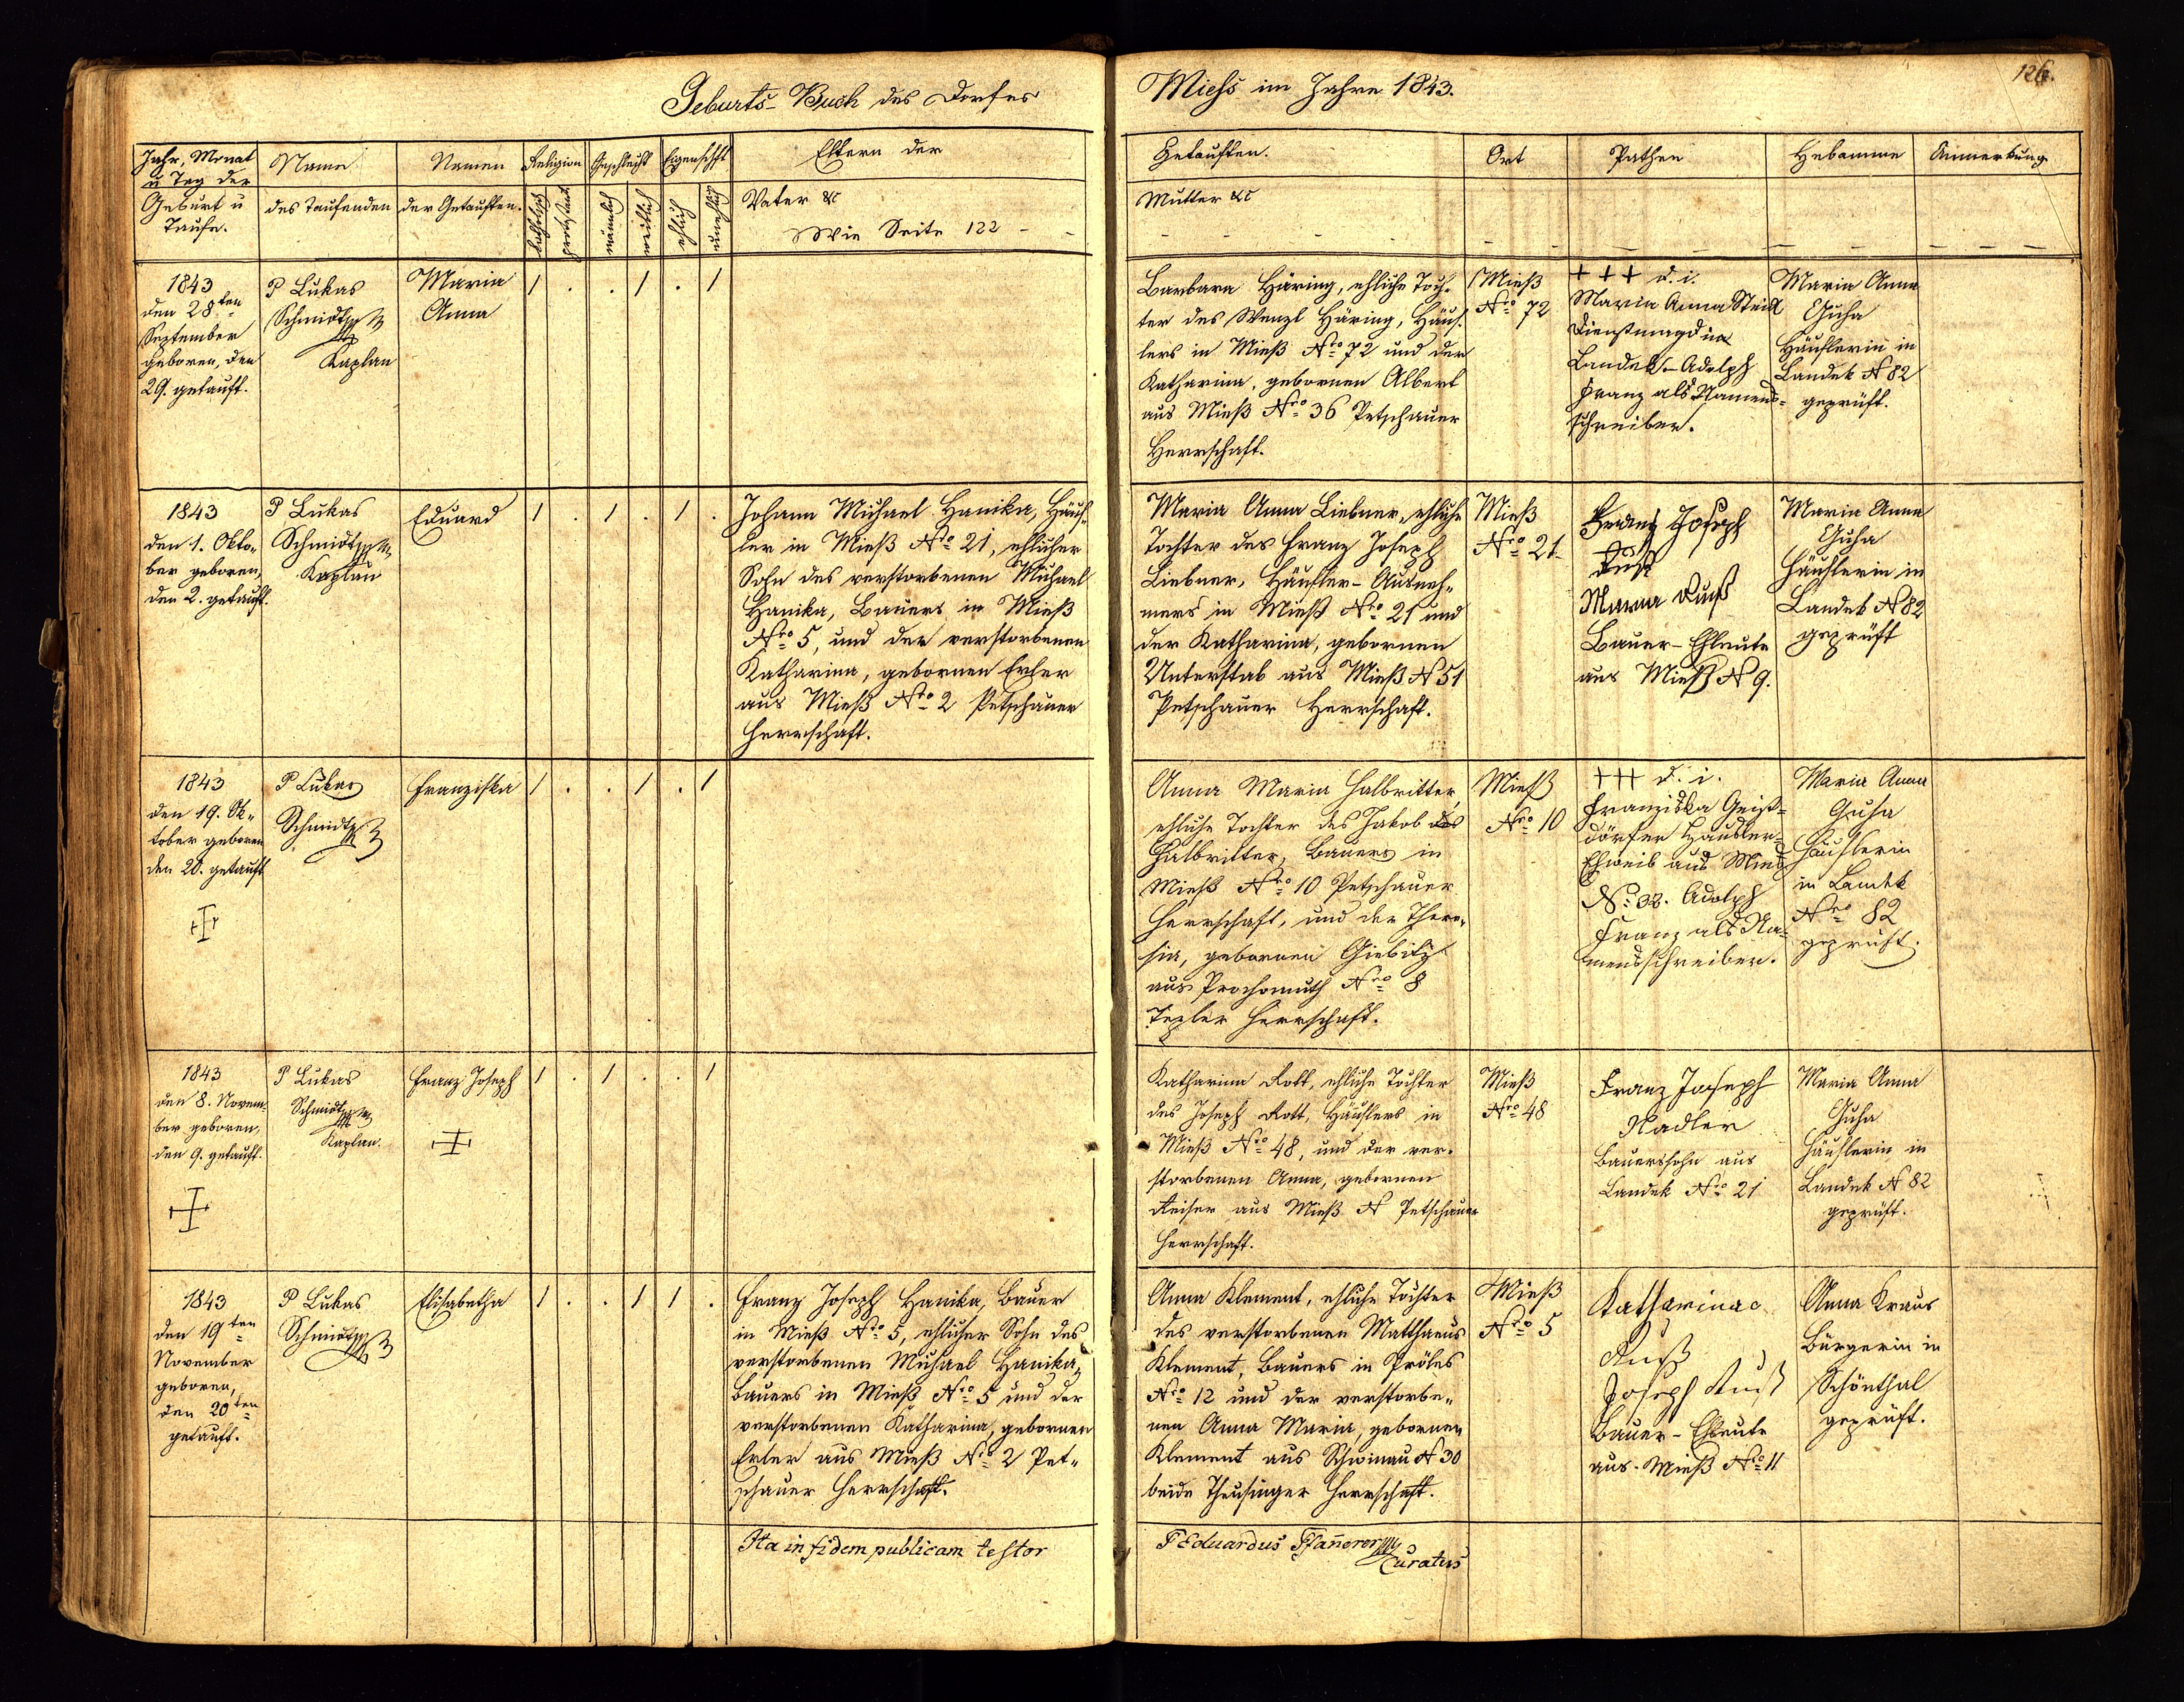 Geburts-Buch des Dorfes
Miess im Jahre 1843.
126.
Jahr, Monat
u Tag der
Geburt u
Taufe.
Name
des Taufenden
Namen
der Getauften.
Religion
katholisch
protestant
Geschlecht
männlich
weiblich
Eigenschft
ehlich
unehlich
Eltern der
Vater &c
Wie Seite 122 - -
Getauften.
Mutter &c
Ort
Pathen
Hebamme
Anmerkung
1843
den 28ten
September
geboren, den
29. getauft.
P Lukas
Schmidt
Kaplan
Maria
Anna
1 . . 1 . 1
Barbara Häring, ehliche Toch-
ter des Wenzl Häring, Häus-
lers in Mieß Nro 72 und der
Katharina, gebornen Albert
aus Mieß Nro 36 Petschauer
Herrschaft.
Mieß
Nro 72
+++ d. i.
Maria Anna Steidl
Dienstmagd in
Landek - Adolph
Franz als Namens-
schreiber.
Maria Anna
Guha
Häuslerin in
Landek N 82
geprüft.
1843
den 1. Okto-
ber geboren,
den 2. getauft.
P Lukas
Schmidt
Kaplan
Eduard
1 . 1 . 1 .
Johann Michael Hanika, Häus-
ler in Mieß Nro 21, ehlicher
Sohn des verstorbenen Michael
Hanika, Bauers in Mieß
Nro 5, und der verstorbenen
Katharina, gebornen Erler
aus Mieß Nro 2 Petschauer
Herrschaft.
Maria Anna Liebner, ehliche
Tochter des Franz Joseph
Liebner, Häusler-Ausneh-
mers in Mieß Nro 21 und
der Katharina, gebornen
Unterstab aus Mieß N 51
Petschauer Herrschaft.
Mieß
Nro 21.
Franz Joseph
Ruß
Maria Ruß
Bauer-Ehleute
aus Mieß N 9.
Maria Anna
Guha
Häuslerin in
Landek N 82
geprüft
1843
den 19. Ok-
tober geboren
den 20. getauft
P Lukas
Schmidt
Franziska
1 . . 1 . 1
Anna Maria Halbritter,
ehliche Tochter des Jakob
Halbritter, Bauers in
Mieß Nro 10 Petschauer
Herrschaft, und der There-
sia, gebornen Giebitz
aus Prochomuth Nro 8
Tepler Herrschaft.
Mieß
Nro 10
+++ d. i.
Franziska Geiß-
dörfer Häusler-
Ehweib aus Mies
No 38. Adolph
Franz als Na-
mensschreiber.
Maria Anna
Guha
Häuslerin
in Landek
Nro 82
geprüft.
1843
den 8. Novem-
ber geboren,
den 9. getauft.
P Lukas
Schmidt
Kaplan.
Franz Joseph
1 . 1 . . 1
Katharina Rott, ehliche Tochter
des Joseph Rott, Häuslers in
Mieß Nro 48, und der ver-
storbenen Anna, gebornen
Reiser aus Mieß N Petschauer
Herrschaft.
Mieß
Nro 48
Franz Joseph
Nadler
Bauerssohn aus
Landek Nro 21
Maria Anna
Guha
Häuslerin in
Landek N 82
geprüft.
1843
den 19ten
November
geboren,
den 20ten
getauft.
P Lukas
Schmidt
Elisabetha
1 . . 1 1 .
Franz Joseph Hanika, Bauer
in Mieß Nro 5, ehlicher Sohn des
verstorbenen Michael Hanika,
Bauers in Mieß Nro 5 und der
verstorbenen Katharina, gebornen
Erler aus Mieß Nro 2 Pet-
schauer Herrschaft.
Anna Klement, ehliche Tochter
des verstorbenen Matthaeus
Klement, Bauers in Pröles
Nro 12 und der verstorbe-
nen Anna Maria, gebornen
Klement aus Schwinau N 30
beide Theusinger Herrschaft.
Mieß
Nro 5
Katharina
Ruß
Joseph Ruß
Bauer-Ehleute
aus Mieß Nro 11
Anna Kraus
Bürgerin in
Schönthal
geprüft.
Ita in fidem publicam testor
P Eduardus Pfanerer
Curatus